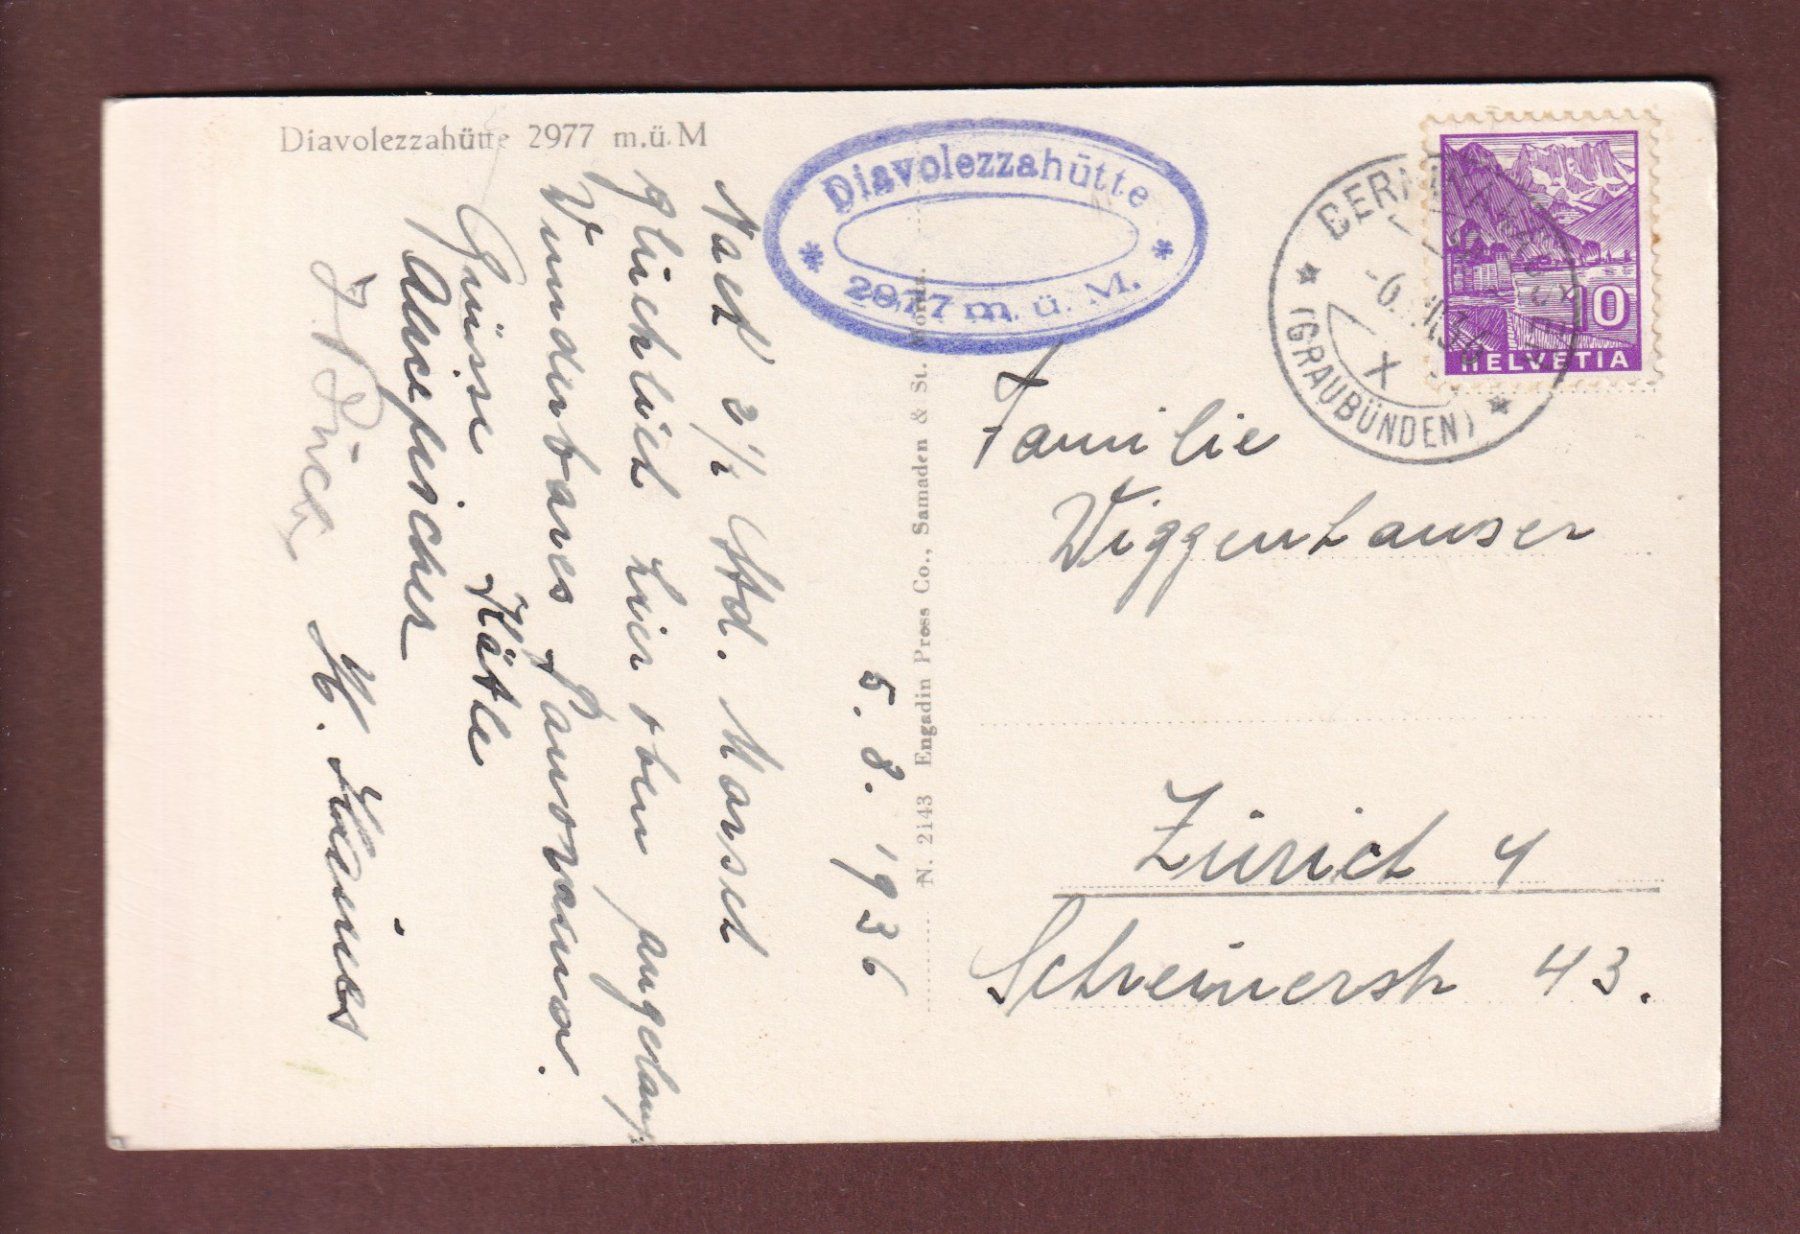 Diavolezzahütte 2977 m.ü.M
Diavolezzahütte
2977 m. ü. M.
(GRAUBÜNDEN)
10
HELVETIA
5. 8. 1936
Nach 3½ Std. Marsch
glücklich hier oben angelangt.
Wunderbares Panorama.
Grüsse Käthe
H.
N. 2143 Engadin Press Co., Samaden & St. Moritz.
Familie
Wiggenhauser
Zürich 4
Scheinerstr 43.